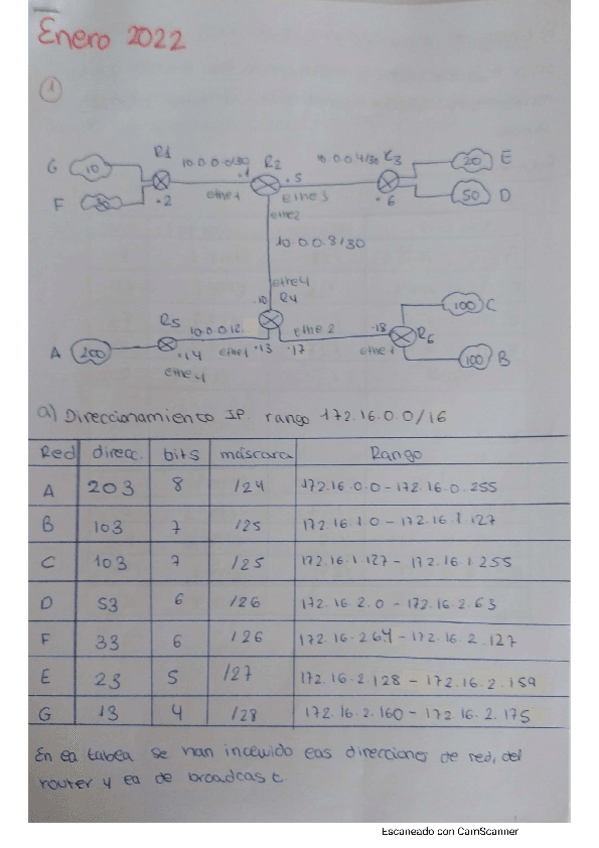 Enero 2022
1
G 10 R1 10.0.0.0/30 .1 R2 10.0.0.4/30 R3 20 E
F .2 ethe1 .5 ethe3 .6 50 D
ethe2
10.0.0.8/30
ethe4
.10 R4
100 C
R5 10.0.0.12 ethe2 .18 R6
A 200 .14 ethe1 .13 .17 ethe1 100 B
ethe4
a) Direccionamiento IP. rango 172.16.0.0/16
Red direcc. bits máscara Rango
A 203 8 /24 172.16.0.0 - 172.16.0.255
B 103 7 /25 172.16.1.0 - 172.16.1.127
C 103 7 /25 172.16.1.127 - 172.16.1.255
D 53 6 /26 172.16.2.0 - 172.16.2.63
F 33 6 /26 172.16.2.64 - 172.16.2.127
E 23 5 /27 172.16.2.128 - 172.16.2.159
G 13 4 /28 172.16.2.160 - 172.16.2.175
En la tabla se han incluido las direcciones de red, del
router y la de broadcast.
Escaneado con CamScanner